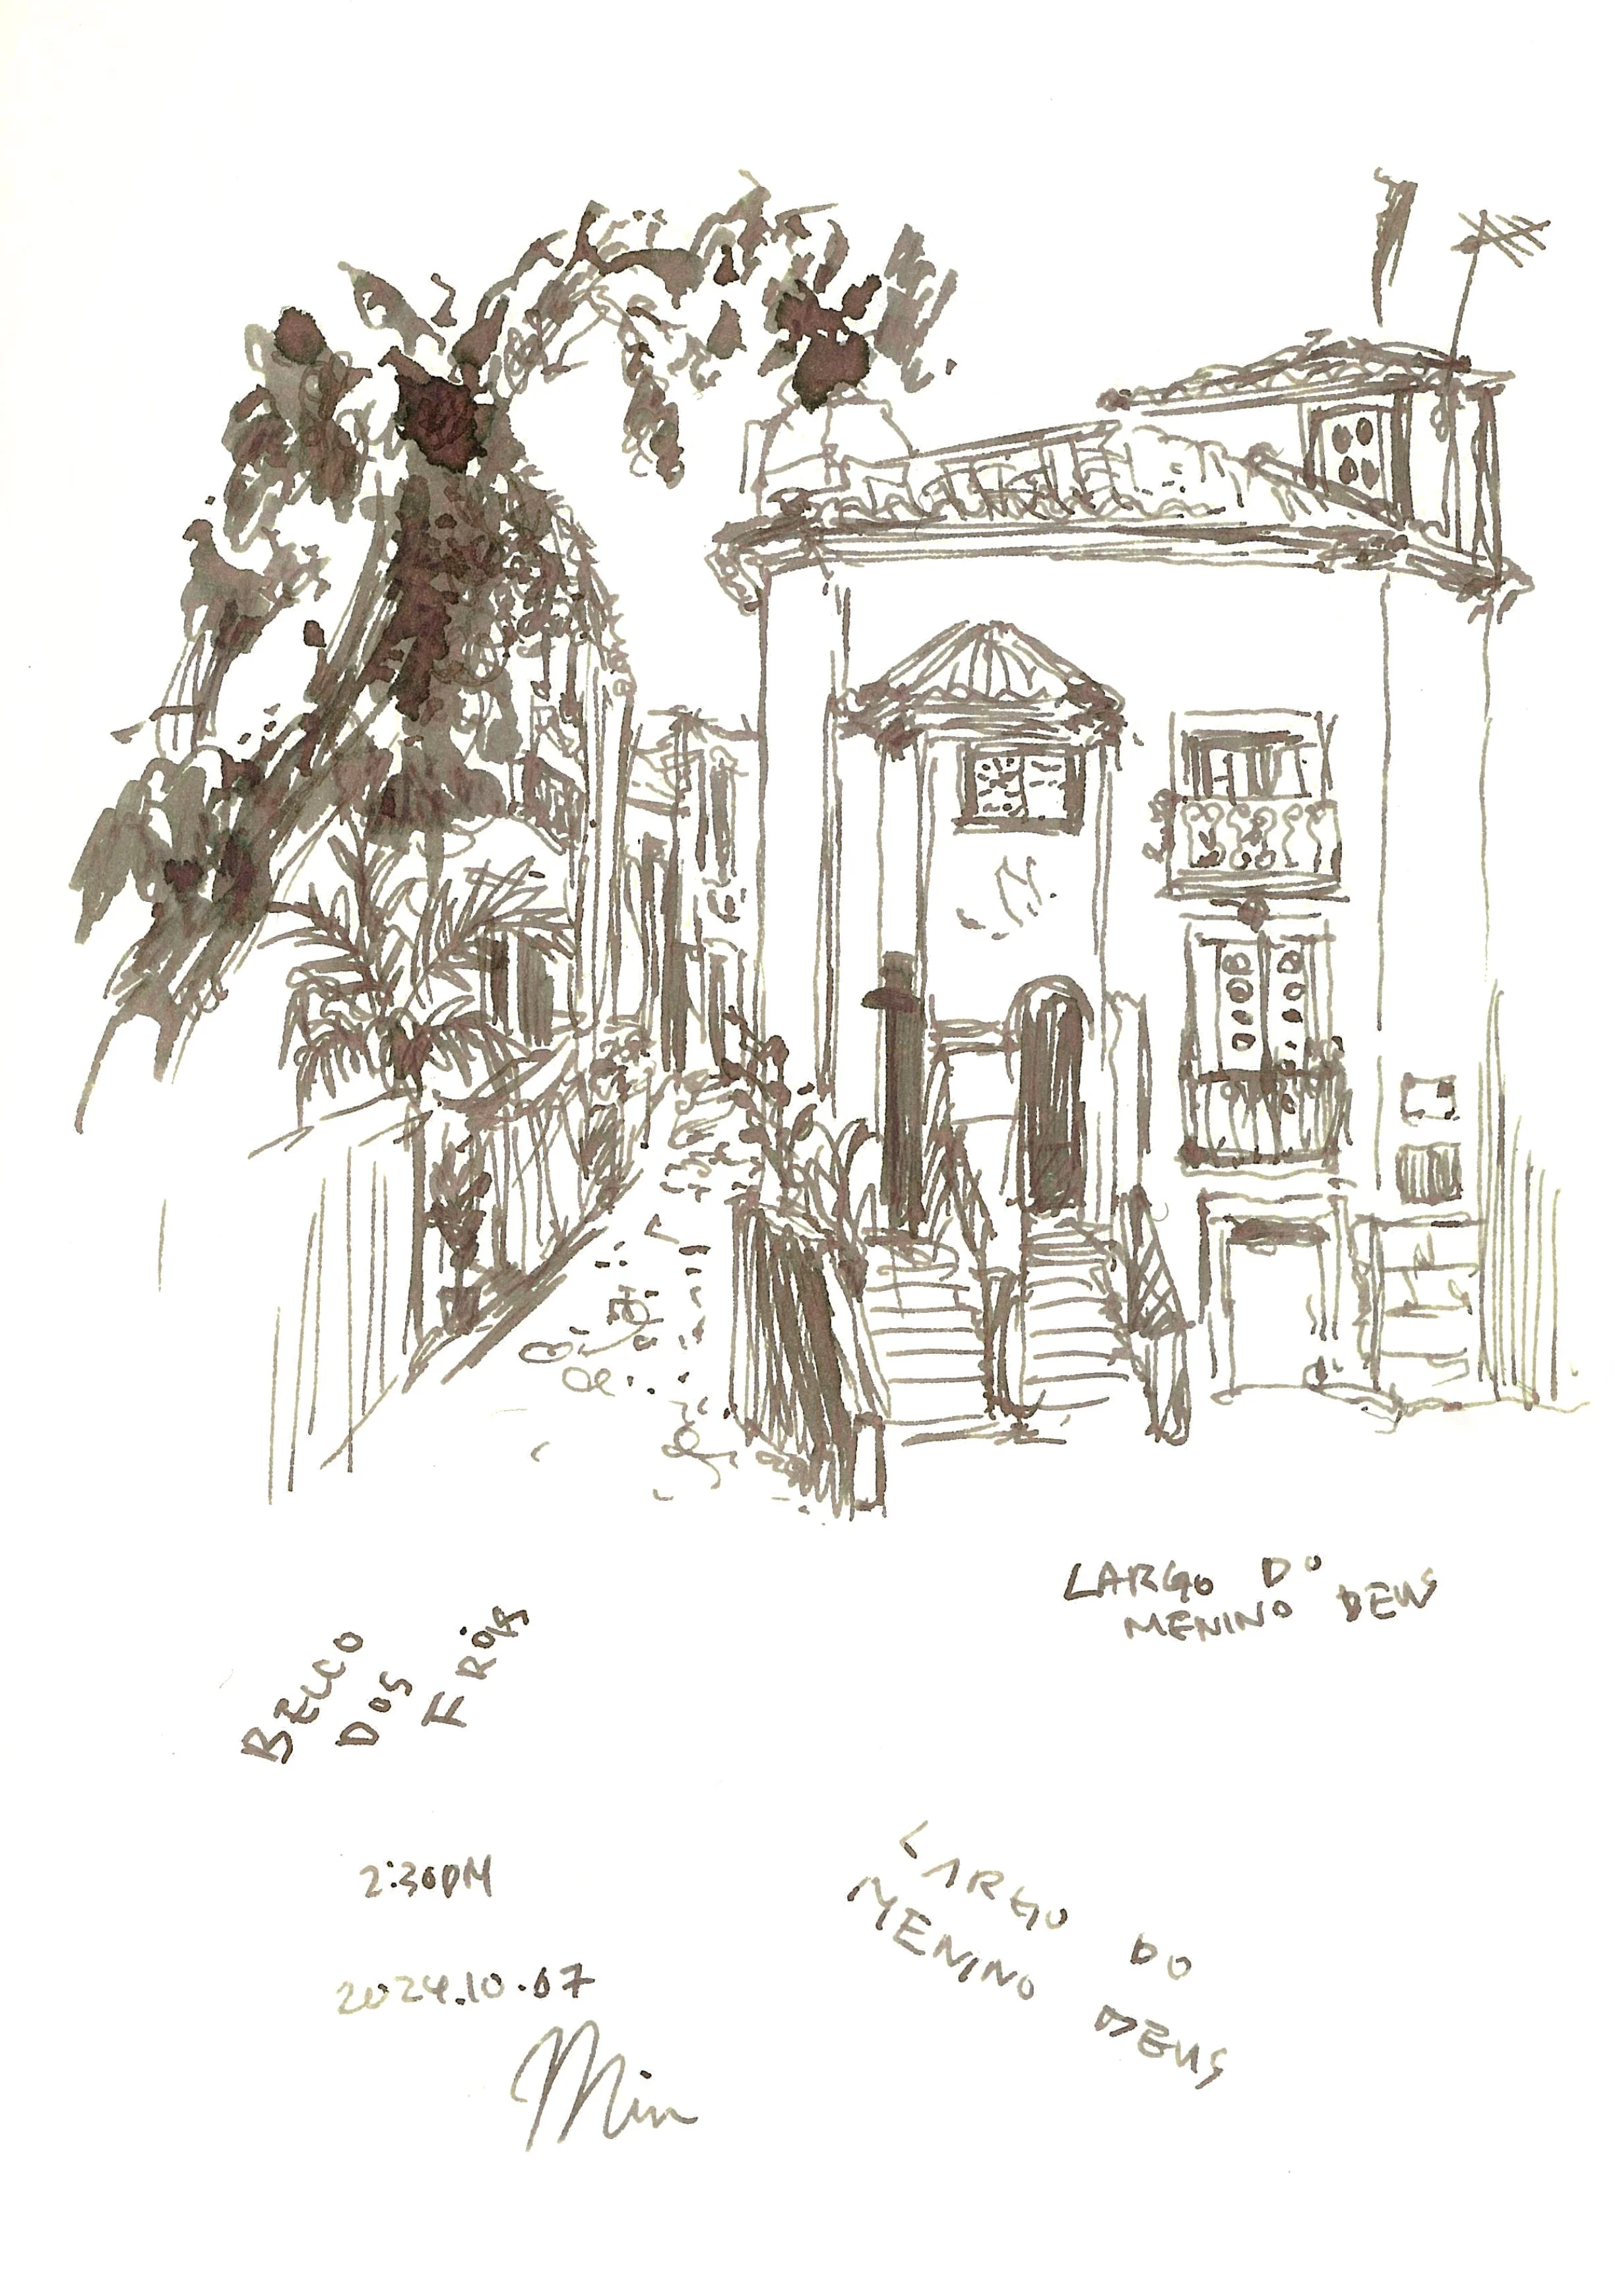 LARGO DO
MENINO DEUS
BECCO
DOS
FRÓIS
2:30PM
LARGO DO
MENINO DEUS
2024.10.07
Min